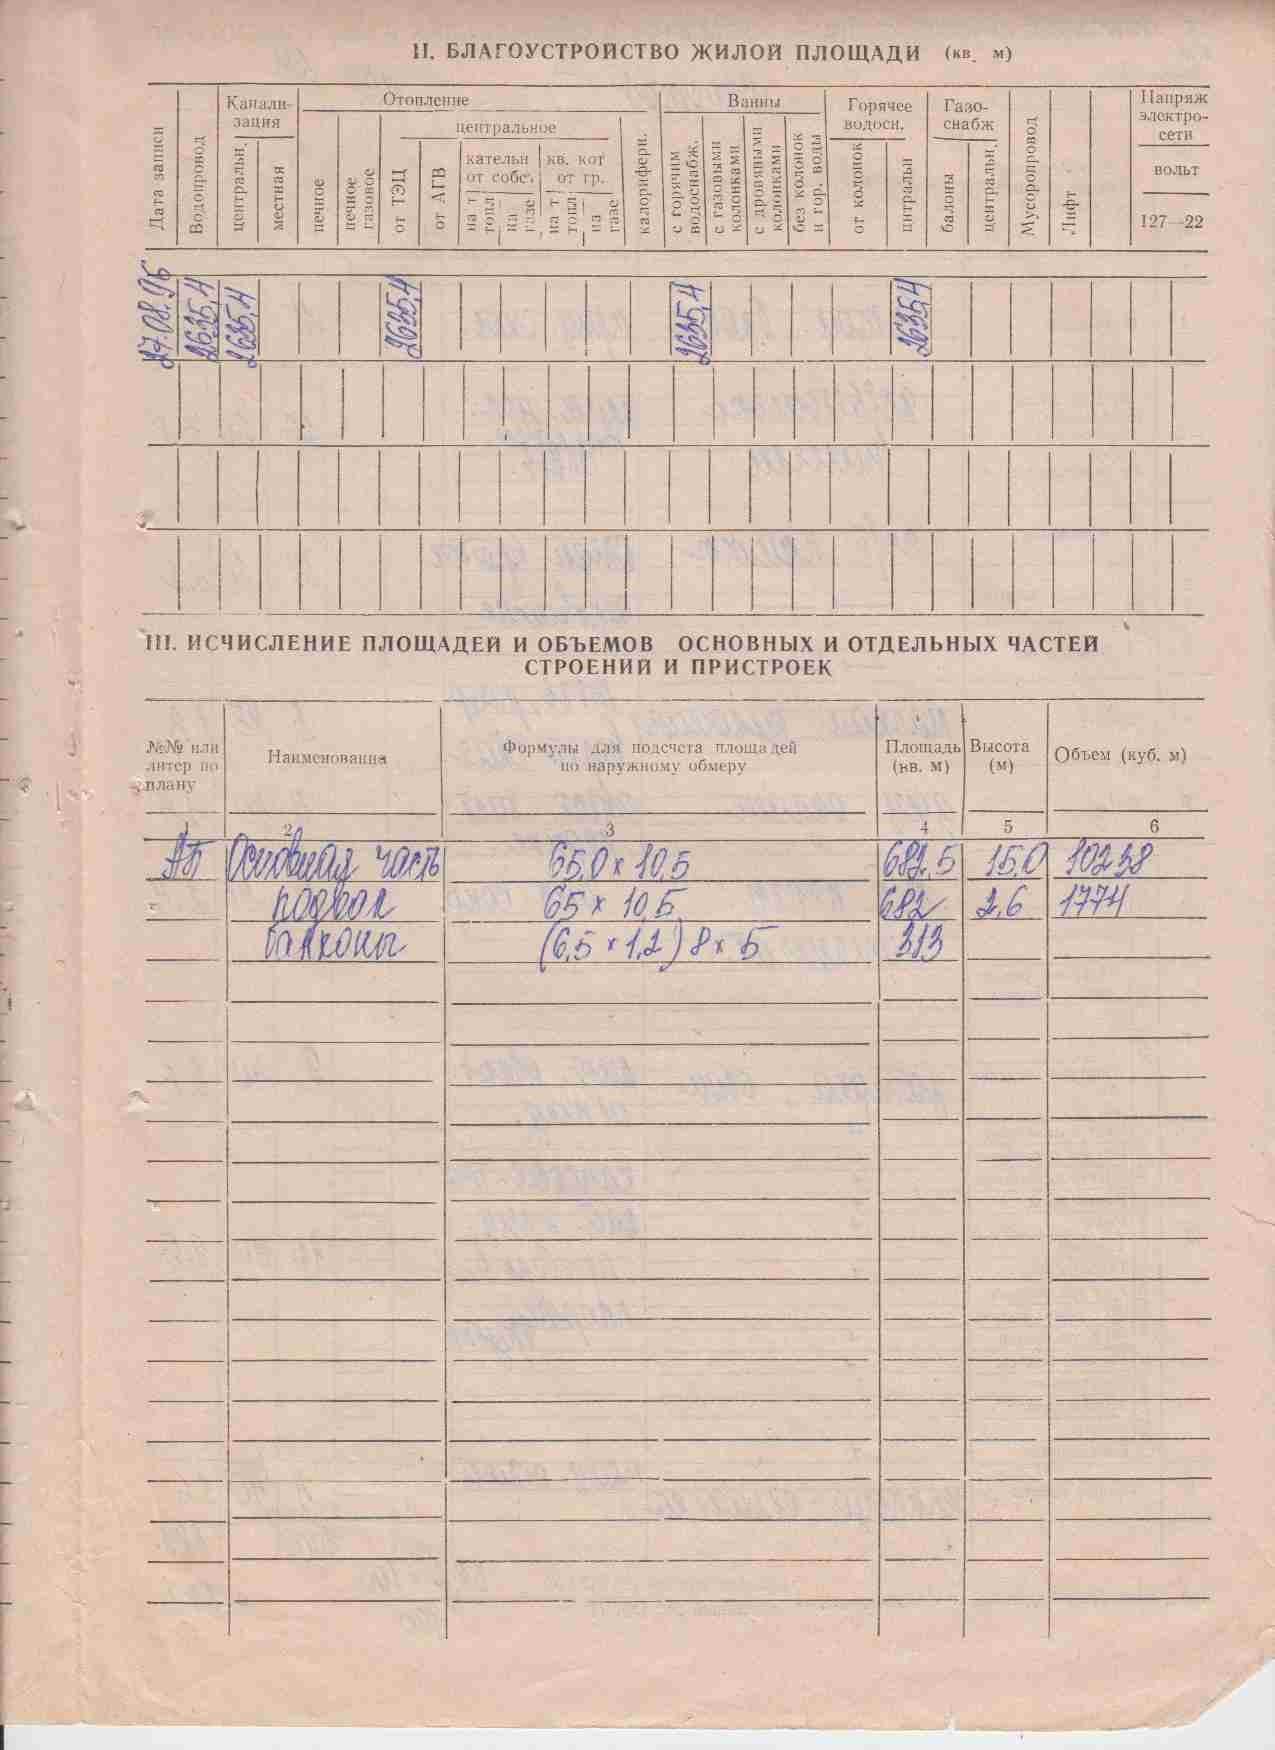 II. БЛАГОУСТРОЙСТВО ЖИЛОЙ ПЛОЩАДИ (кв. м)
Дата записи
Водопровод
Канали-
зация
центральн.
местная
Отопление
печное
печное
газовое
центральное
от ТЭЦ
от АГВ
кательн
от собс.
на т
топл
на
газе
кв. кот
от гр.
на т.
топл.
на
газе
калорифери.
Ванны
с горячим
водоснабж.
с газовыми
колонками
с дровяными
колонками
без колонок
и гор. воды
Горячее
водосн.
от колонок
центральн
Газо-
снабж
балоны
центральн.
Мусоропровод
Лифт
Напряж
электро-
сети
вольт
127—22
27.08.96 2635,4 2635,4 2635,4 2635,4 2635,4
III. ИСЧИСЛЕНИЕ ПЛОЩАДЕЙ И ОБЪЕМОВ ОСНОВНЫХ И ОТДЕЛЬНЫХ ЧАСТЕЙ
СТРОЕНИЙ И ПРИСТРОЕК
№№ или
литер по
плану
Наименование
Формулы для подсчета площадей
по наружному обмеру
Площадь
(кв. м)
Высота
(м)
Объем (куб. м)
1 2 3 4 5 6
АБ Основная часть 65,0 × 10,5 682,5 15,0 10238
подвал 65 × 10,5 682 2,6 1774
балконы (6,5 × 1,2) 8 × 5 313